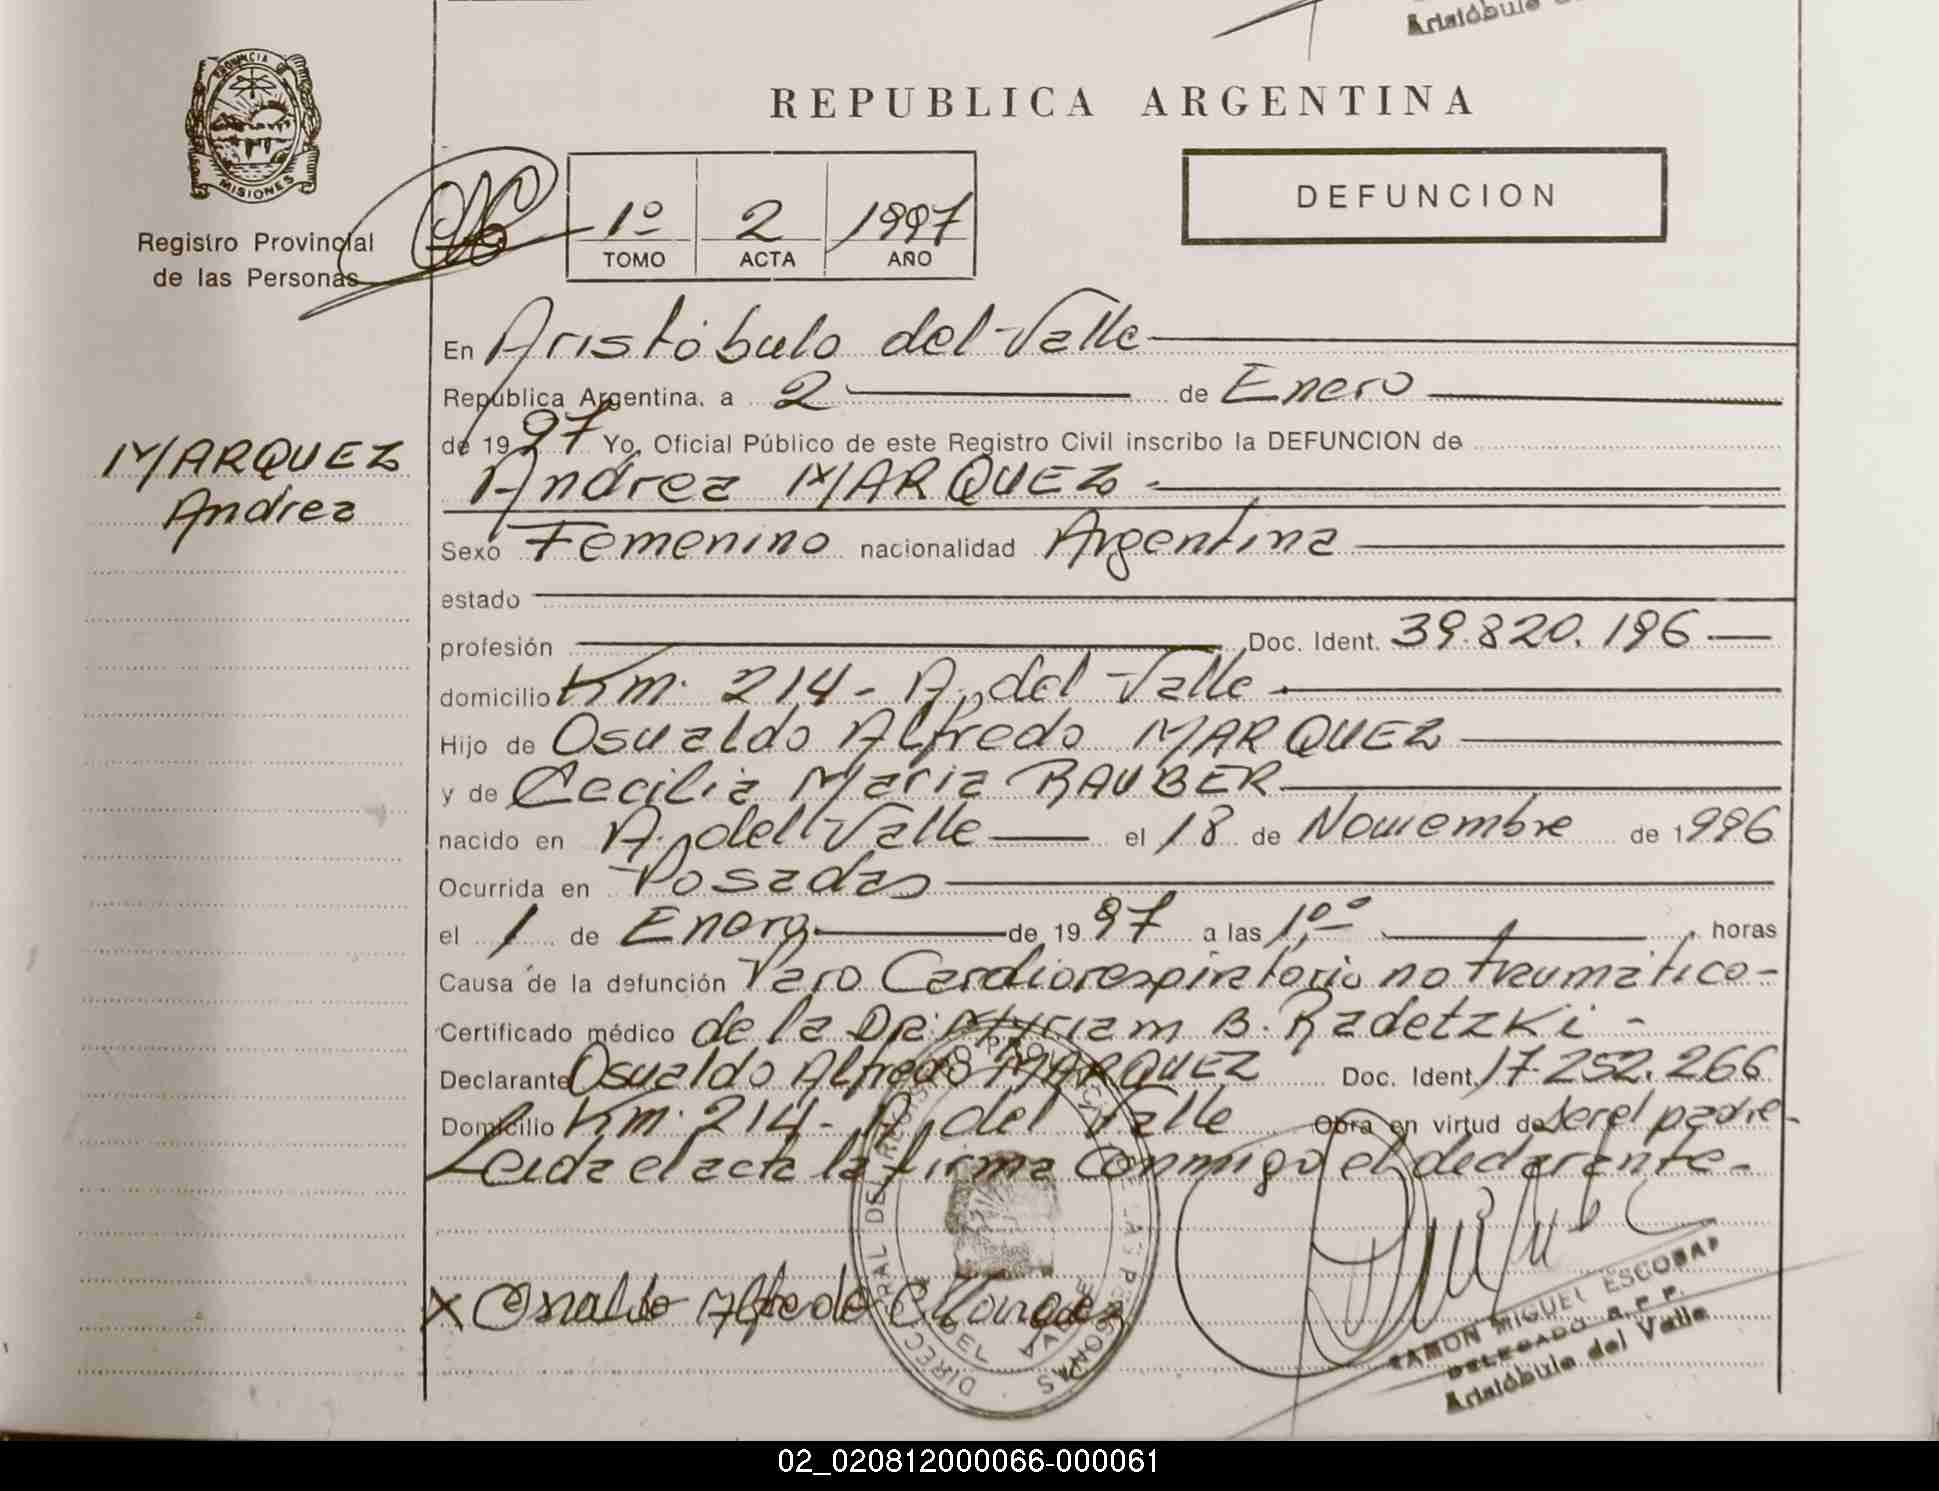 Aristóbulo
REPUBLICA ARGENTINA
PROVINCIA DE
MISIONES
Registro Provincial
de las Personas
1º 2 1997
TOMO ACTA AÑO
DEFUNCION
En Aristóbulo del Valle
República Argentina, a 2 de Enero
de 1997 Yo, Oficial Público de este Registro Civil inscribo la DEFUNCION de
MARQUEZ
Andrea
Andrea MARQUEZ.
Sexo Femenino nacionalidad Argentina
estado
profesión Doc. Ident. 39.820.196
domicilio Km. 214 - A. del Valle
Hijo de Osvaldo Alfredo MARQUEZ
y de Cecilia Maria RAUBER
nacido en A. del Valle el 18 de Noviembre de 1996
Ocurrida en Posadas
el 1 de Enero de 1997 a las 1,00 horas
Causa de la defunción Paro Cardiorespiratorio no traumático-
Certificado médico de la Dra. Myriam B. Radetzki -
Declarante Osvaldo Alfredo MARQUEZ Doc. Ident. 17.252.266
Domicilio Km. 214 - A. del Valle Obra en virtud de ser el padre-
Leida el acta la firma conmigo el declarante-
X Osvaldo Alfredo Marquez
DIRECC. GRAL. DEL REGISTRO PROVINCIAL DE LAS PERSONAS
DEL VALLE
RAMON MIGUEL ESCOBAR
DELEGADO R.P.P.
Aristóbulo del Valle
02_020812000066-000061